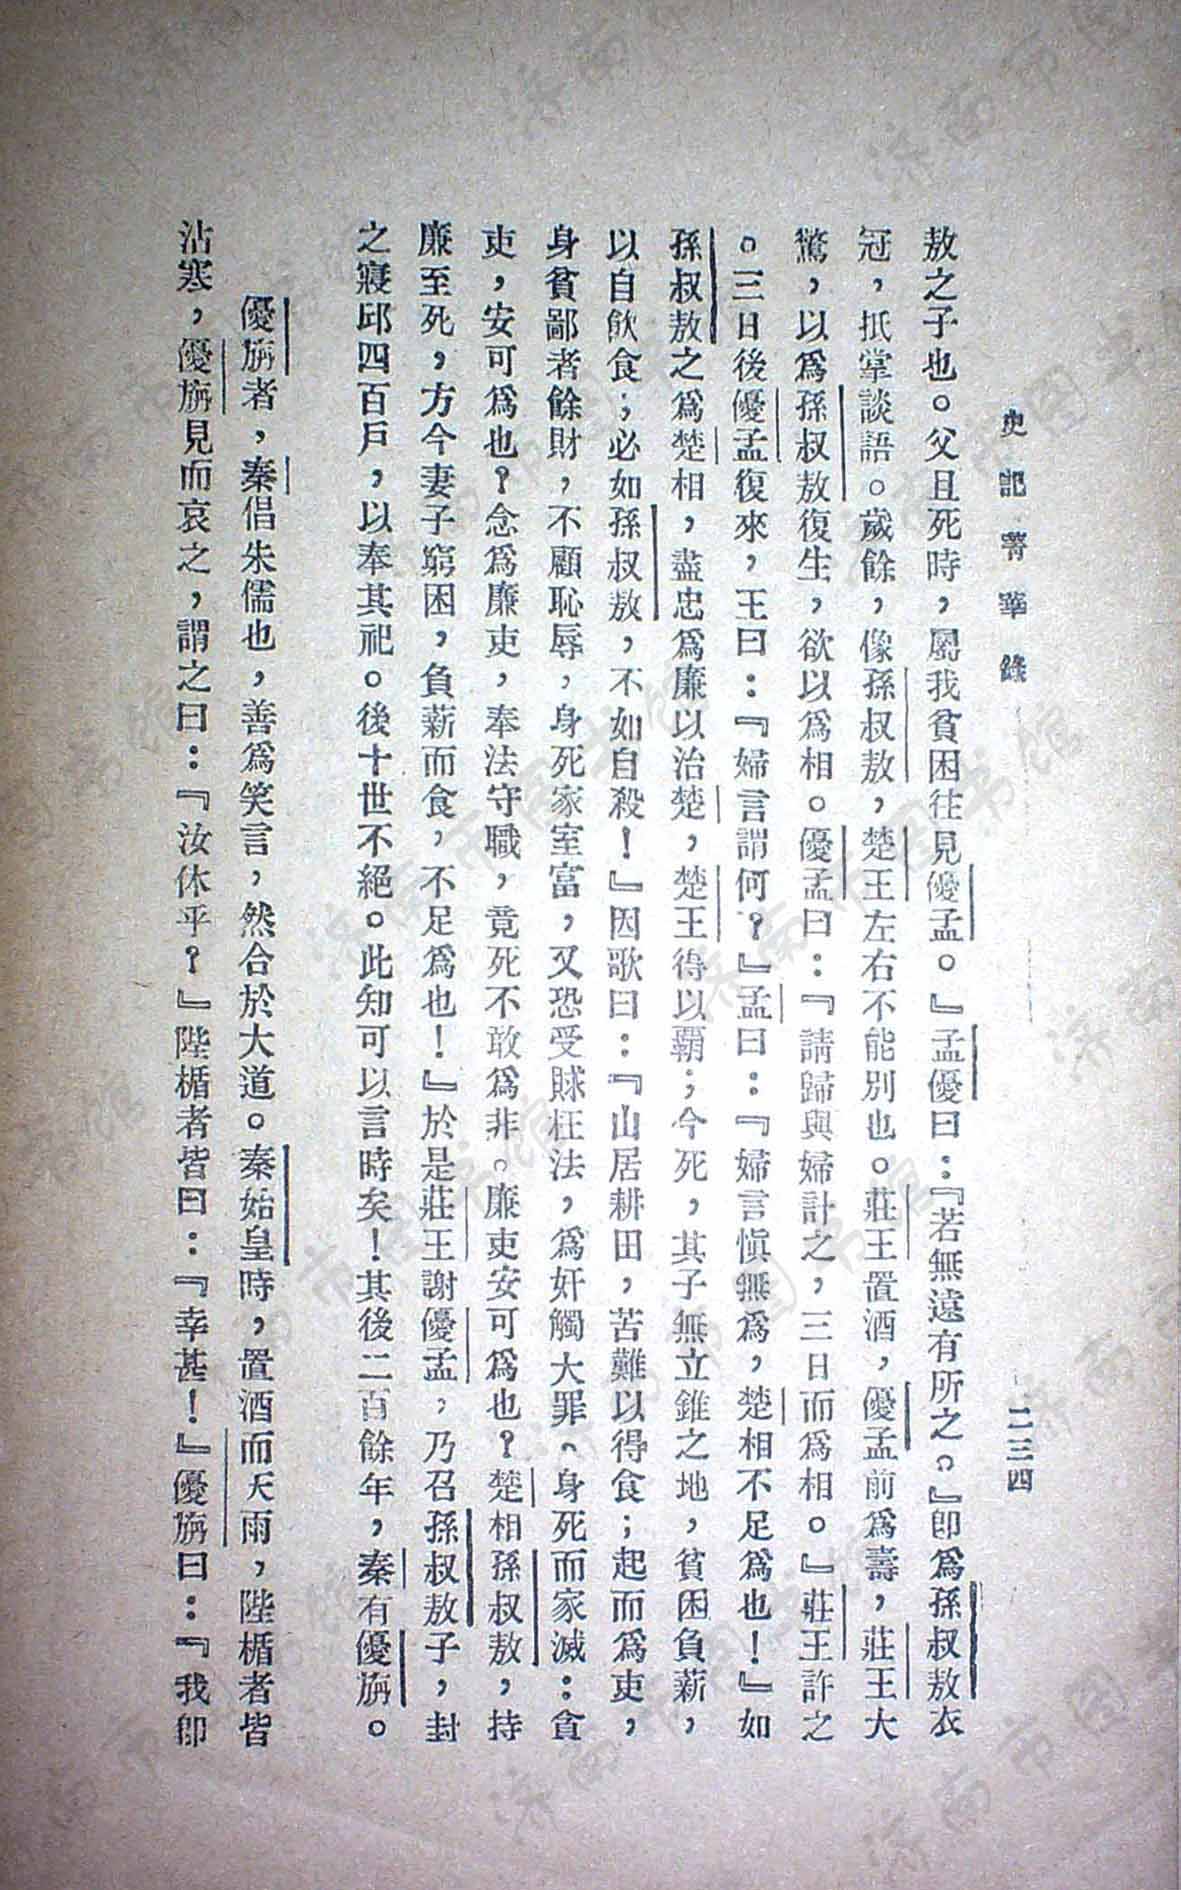 史記菁華錄
二三四
敖之子也。父且死時，屬我貧困往見優孟。』孟優曰：『若無遠有所之。』卽爲孫叔敖衣
冠，抵掌談語。歲餘，像孫叔敖，楚王左右不能別也。莊王置酒，優孟前爲壽，莊王大
驚，以爲孫叔敖復生，欲以爲相。優孟曰：『請歸與婦計之，三日而爲相。』莊王許之
。三日後優孟復來，王曰：『婦言謂何？』孟曰：『婦言愼無爲，楚相不足爲也！』如
孫叔敖之爲楚相，盡忠爲廉以治楚，楚王得以霸；今死，其子無立錐之地，貧困負薪，
以自飲食；必如孫叔敖，不如自殺！』因歌曰：『山居耕田，苦難以得食；起而爲吏，
身貧鄙者餘財，不顧恥辱，身死家室富，又恐受賕枉法，爲奸觸大罪。身死而家滅：貪
吏，安可爲也？念爲廉吏，奉法守職，竟死不敢爲非。廉吏安可爲也？楚相孫叔敖，持
廉至死，方今妻子窮困，負薪而食，不足爲也！』於是莊王謝優孟，乃召孫叔敖子，封
之寢邱四百戶，以奉其祀。後十世不絕。此知可以言時矣！其後二百餘年，秦有優旃。
優旃者，秦倡朱儒也，善爲笑言，然合於大道。秦始皇時，置酒而天雨，陛楯者皆
沾寒，優旃見而哀之，謂之曰：『汝休乎？』陛楯者皆曰：『幸甚！』優旃曰：『我卽
济南市图书馆